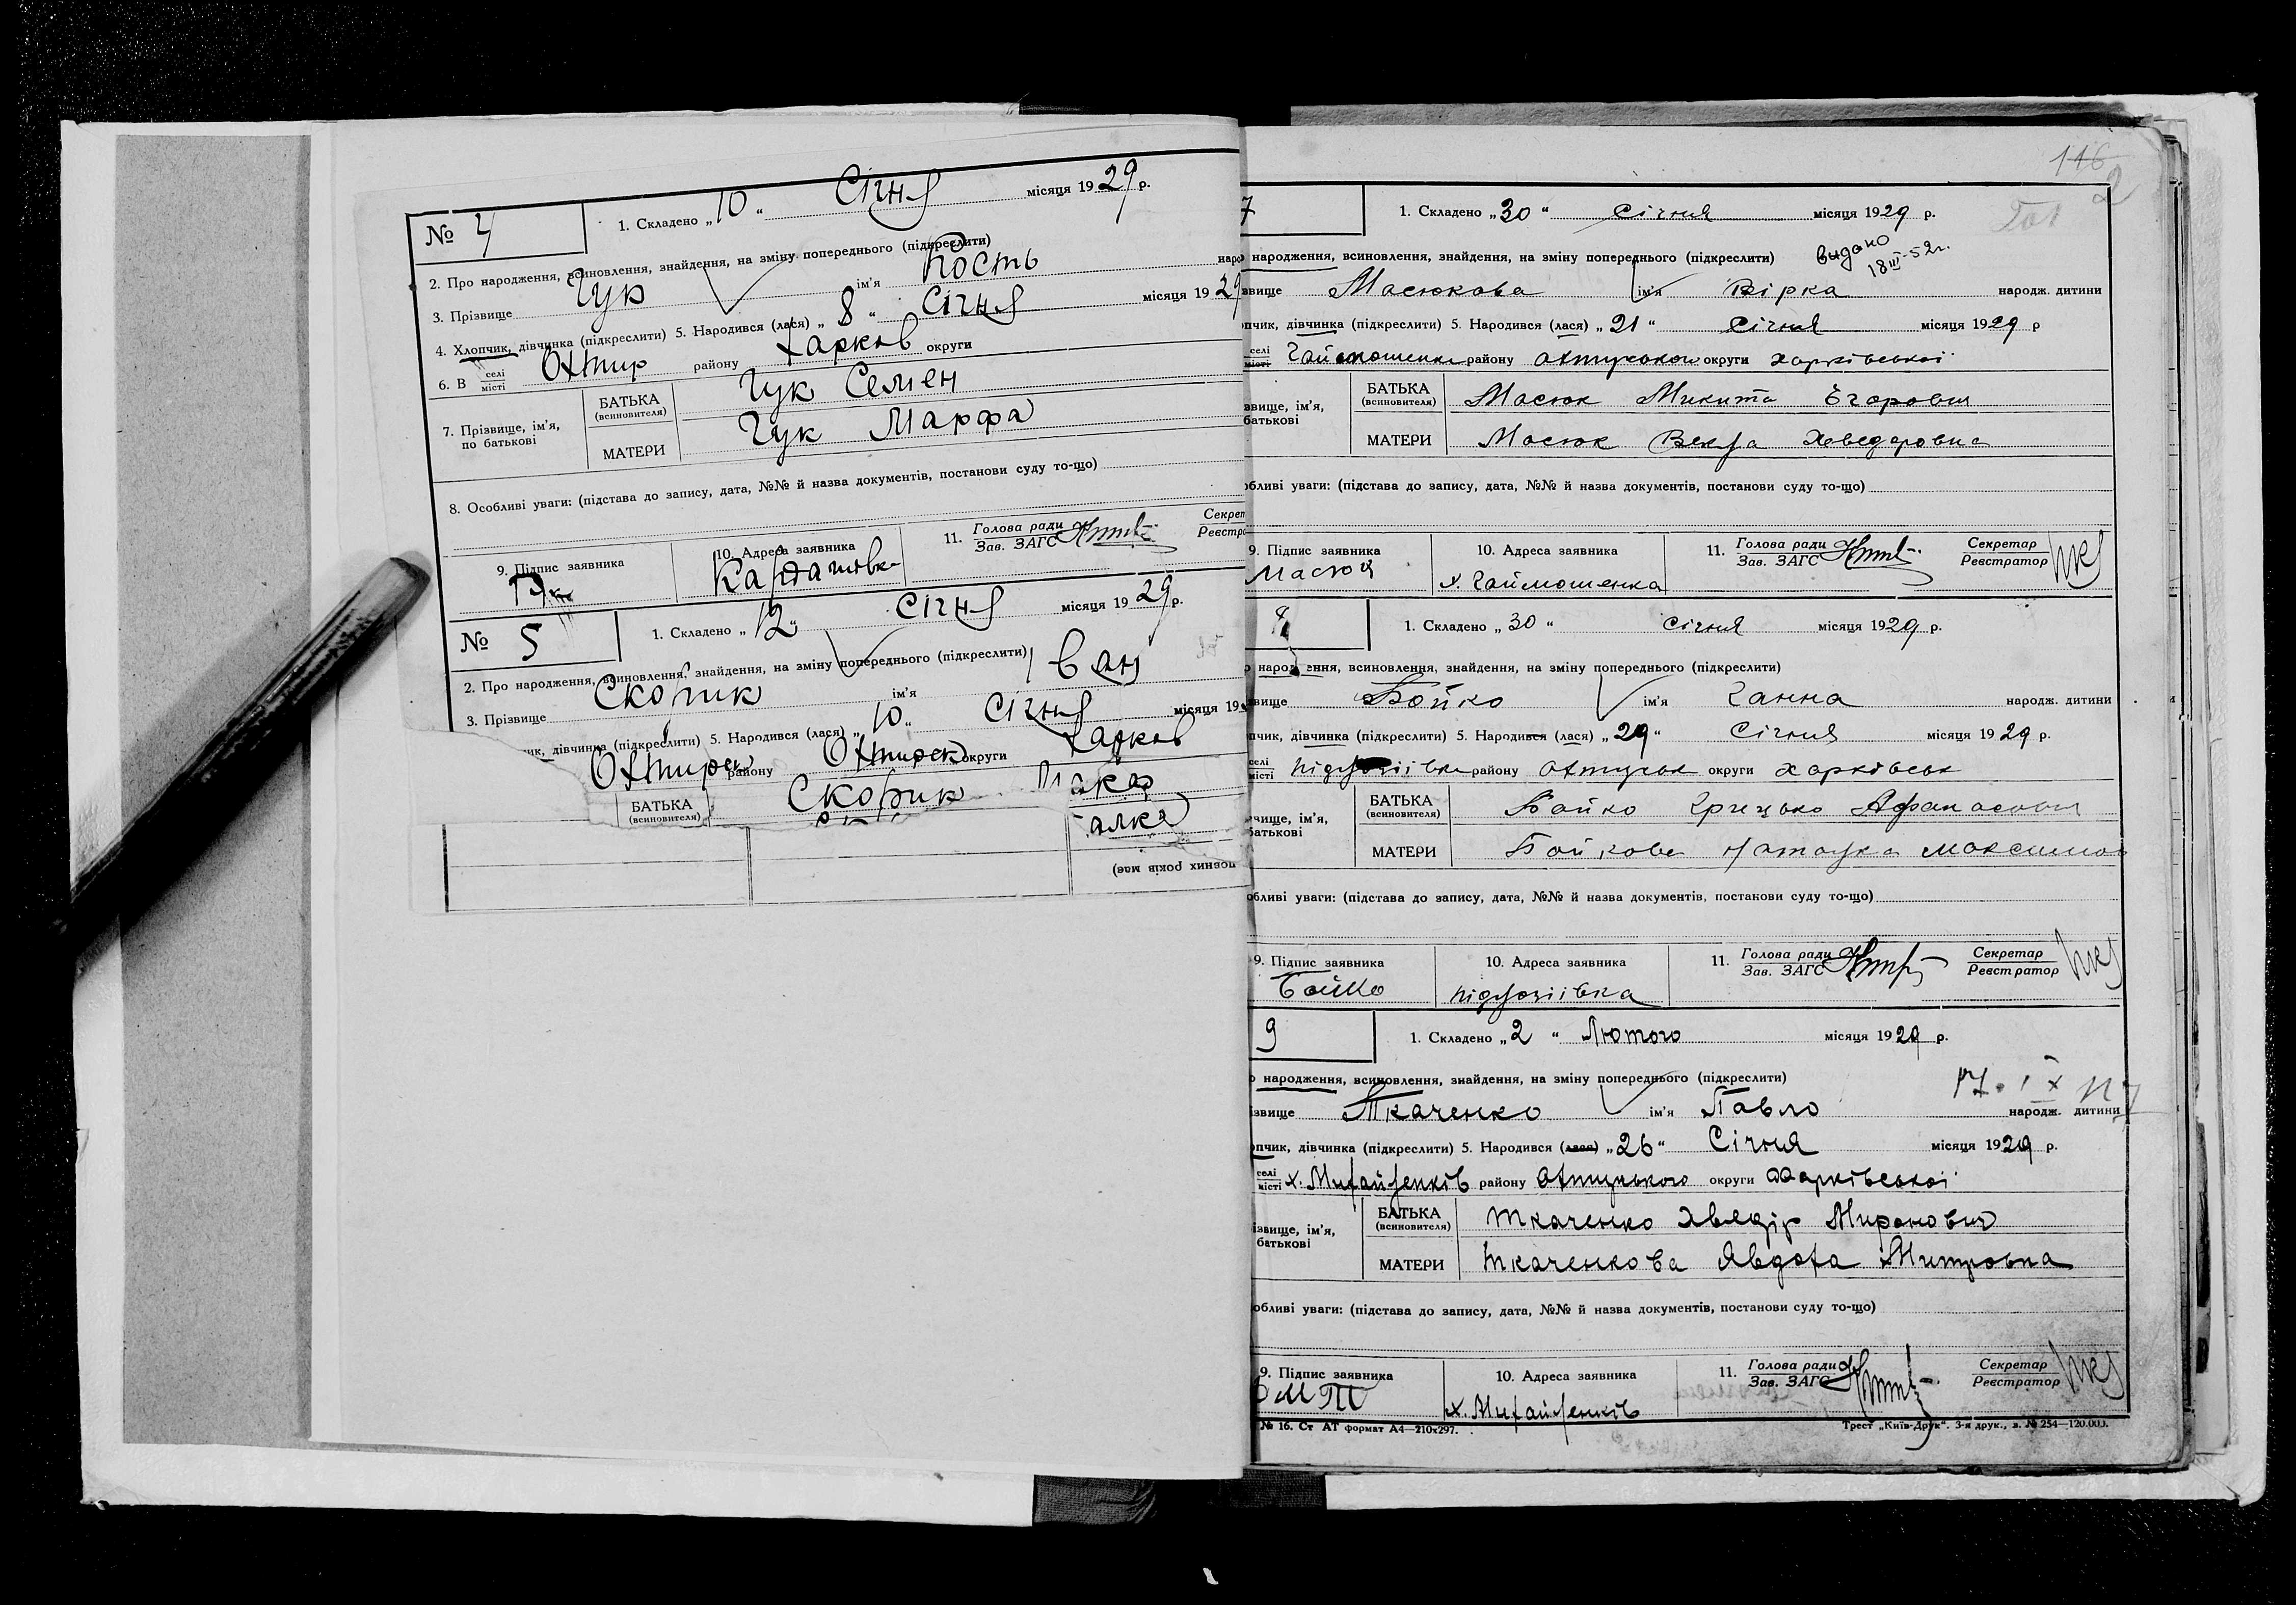 № 4
1. Складено „ 10 “ Січня місяця 1929 р.
2. Про народження, всиновлення, знайдення, на зміну попереднього (підкреслити)
3. Прізвище Гук ім'я Кость наро
4. Хлопчик, дівчинка (підкреслити) 5. Народився (лася) „ 8 “ Січня місяця 1929
6. В селі місті Охтир району Харков округи
7. Прізвище, ім'я, по батькові
БАТЬКА (всиновителя) Гук Семен
МАТЕРИ Гук Марфа
8. Особливі уваги: (підстава до запису, дата, №№ й назва документів, постанови суду то-що)
9. Підпис заявника
10. Адреса заявника
11. Голова ради Зав. ЗАГС
Секрет
Реєстра
№ 5
1. Складено „ 12 “ Січня місяця 1929 р.
2. Про народження, всиновлення, знайдення, на зміну попереднього (підкреслити)
3. Прізвище Скорик ім'я Іван
чик, дівчинка (підкреслити) 5. Народився (лася) „ 10 “ Січня місяця 19
Охтирск району Охтирск округи Харков
БАТЬКА (всиновителя) Скорик Макар
алка
повних років має)
116
2
7
1. Складено „ 30 “ січня місяця 1929 р.
народження, всиновлення, знайдення, на зміну попереднього (підкреслити)
видано 18 III-52 г.
звище Масюкова ім'я Вірка народж. дитини
пчик, дівчинка (підкреслити) 5. Народився (лася) „ 21 “ Січня місяця 1929 р
селі місті Гаймошенка району Охтирського округи Харківської
звище, ім'я, батькові
БАТЬКА (всиновителя) Масюк Микита Єгорович
МАТЕРИ Масюк Векла Хведоровна
обливі уваги: (підстава до запису, дата, №№ й назва документів, постанови суду то-що)
9. Підпис заявника Масюк
10. Адреса заявника х. Гаймошенка
11. Голова ради Зав. ЗАГС
Секретар Реєстратор
8
1. Складено „ 30 “ січня місяця 1929 р.
народження, всиновлення, знайдення, на зміну попереднього (підкреслити)
звище Бойко ім'я Ганна народж. дитини
пчик, дівчинка (підкреслити) 5. Народився (лася) „ 29 “ Січня місяця 1929 р.
селі місті району Охтирськ округи Харківськ
звище, ім'я, батькові
БАТЬКА (всиновителя) Бойко Грицько Афанасович
МАТЕРИ Бойкова Наталка Максимов
обливі уваги: (підстава до запису, дата, №№ й назва документів, постакови суду то-що)
9. Підпис заявника Бойко
10. Адреса заявника
11. Голова ради Зав. ЗАГС
Секретар Реєстратор
9
1. Складено „ 2 “ Лютого місяця 1929 р.
народження, всиновлення, знайдення, на зміну попереднього (підкреслити)
звище Ткаченко ім'я Павло народж. дитини
опчик, дівчинка (підкреслити) 5. Народився (лася) „ 26 “ Січня місяця 1929 р.
селі місті х. Михайленків району Охтирського округи Харківської
ізвище, ім'я, батькові
БАТЬКА (всиновителя) Ткаченко Хведір Миронович
МАТЕРИ Ткаченкова Явдоха Митровна
обливі уваги: (підстава до запису, дата, №№ й назва документів, постанови суду то-що)
9. Підпис заявника
10. Адреса заявника х. Михайленків
11. Голова ради Зав. ЗАГС
Секретар Реєстратор
№ 16. Ст АТ формат А4—210х297.
Трест „Київ-Друк“. 3-я друк., з. № 254—120.000.